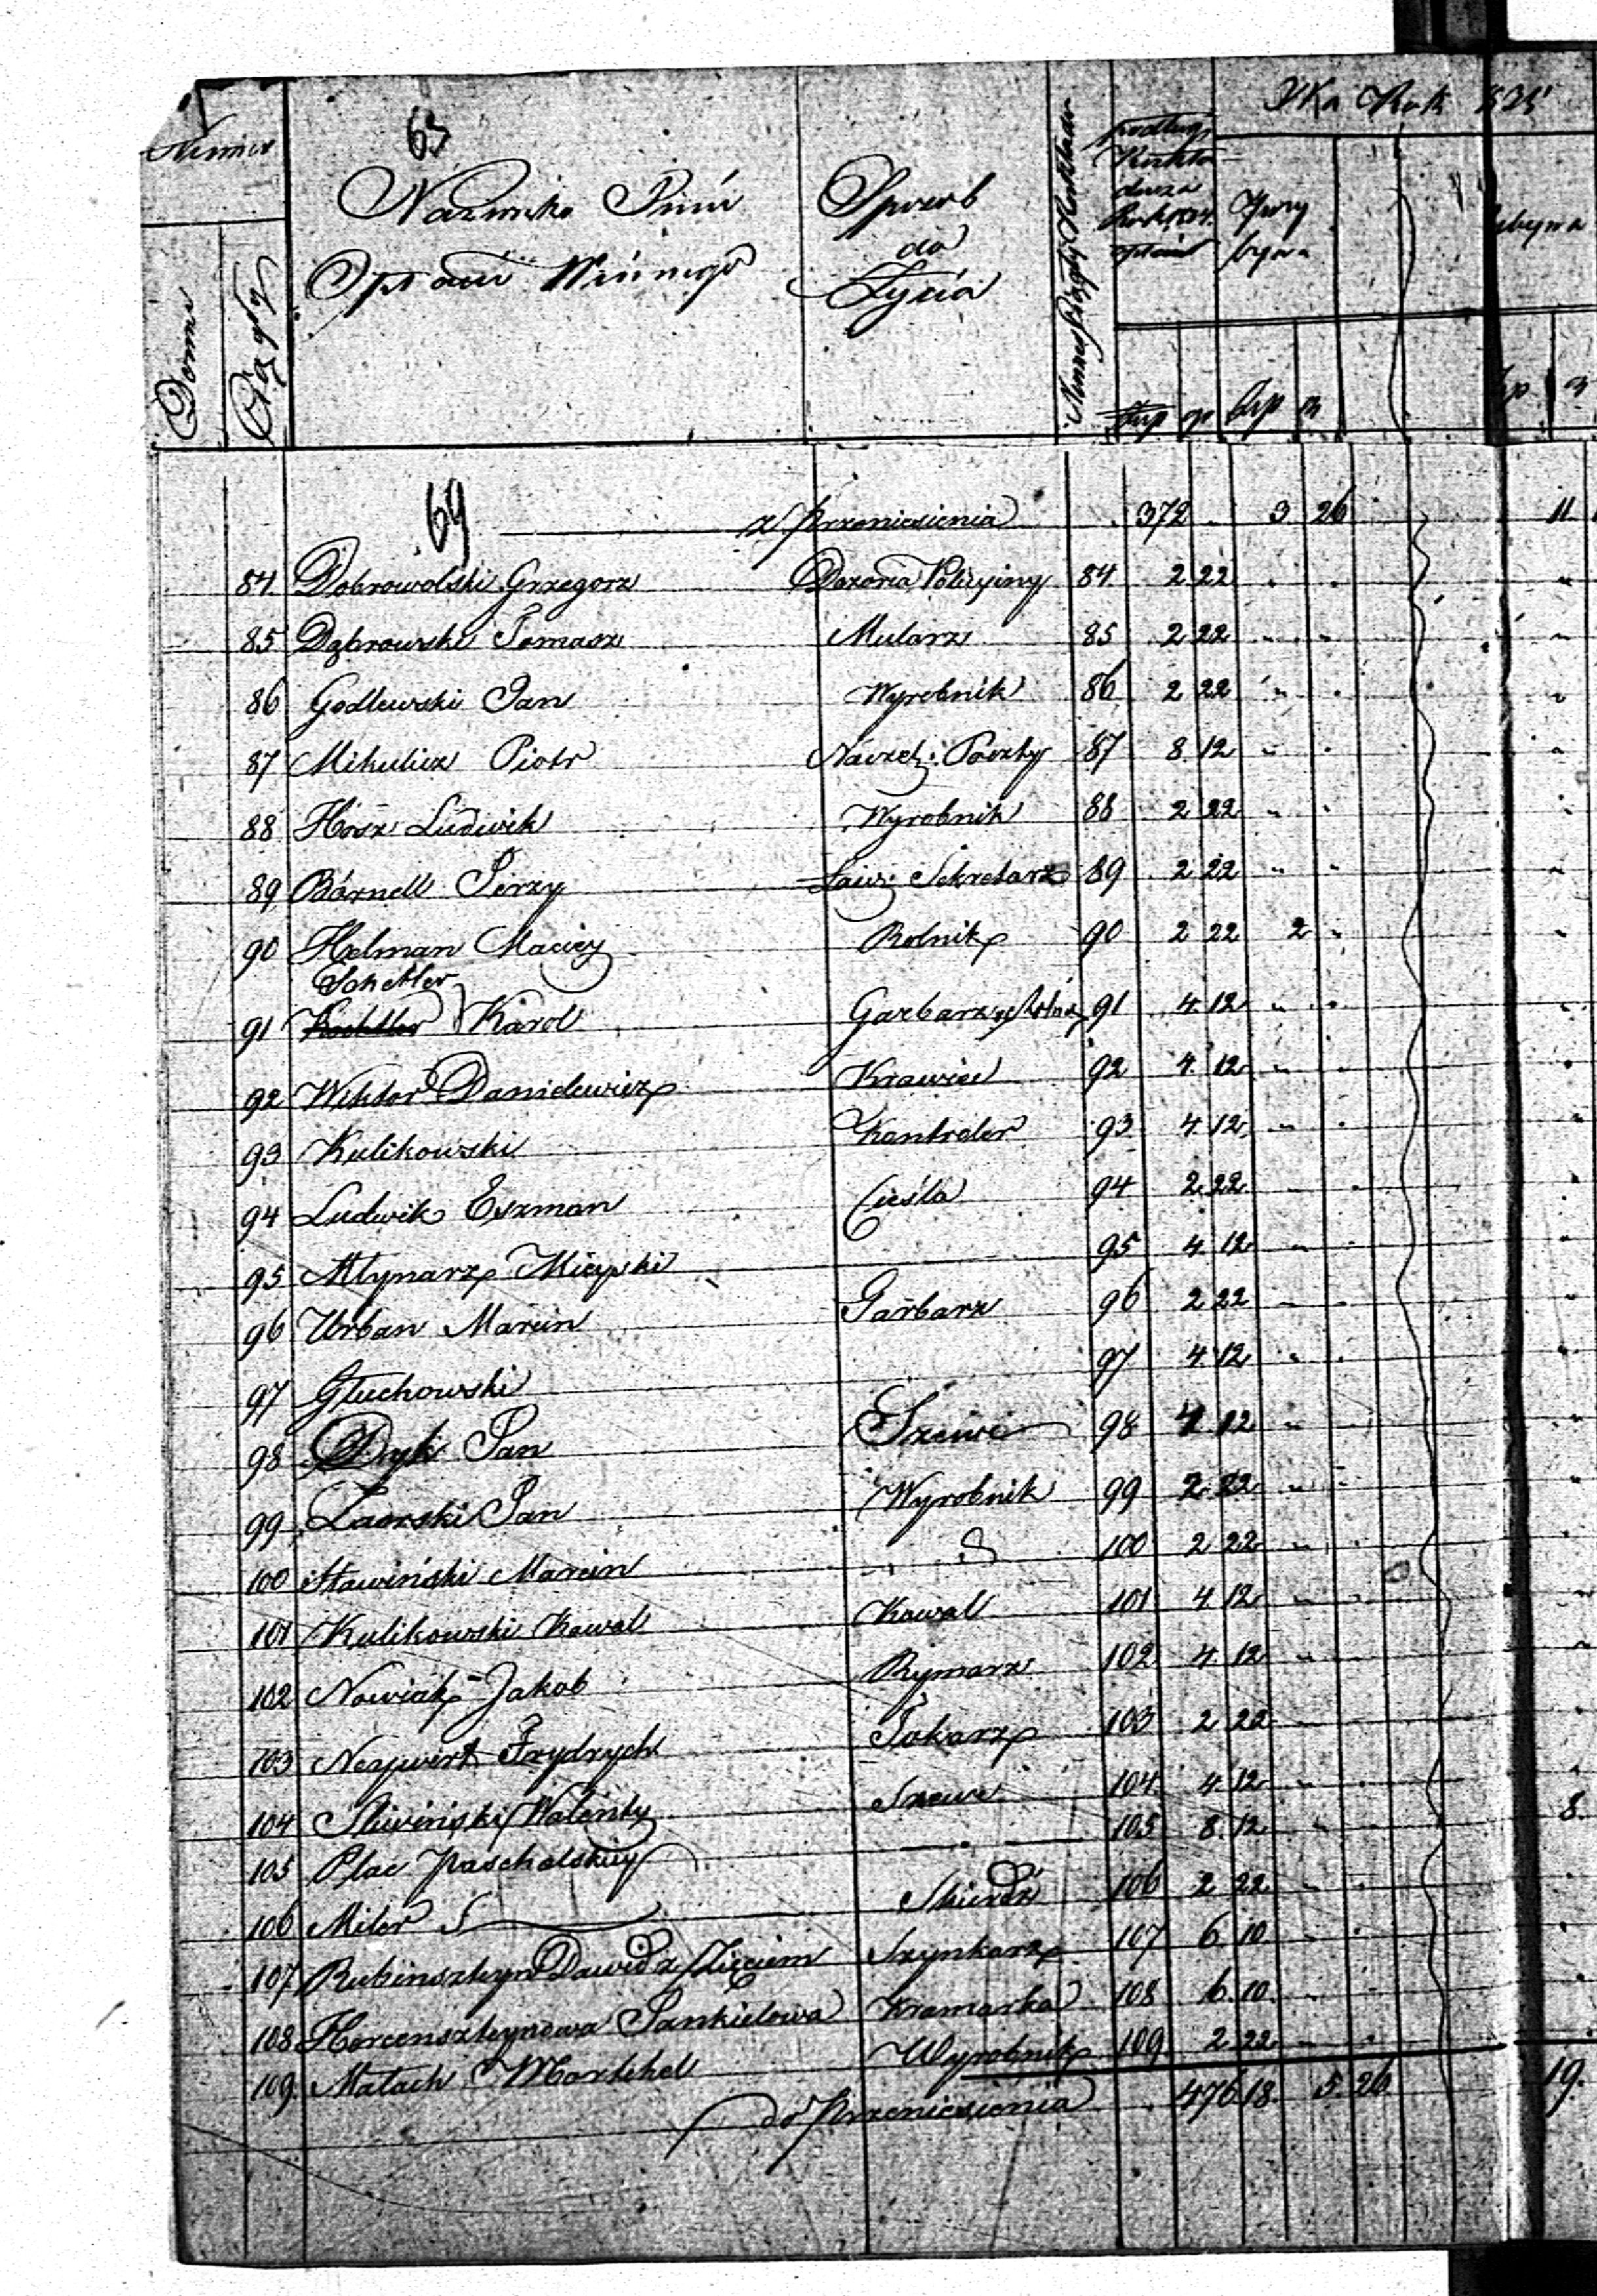 63
Numer
Domu
Nazwisko Imie
Opłacaiącego
Sposob
do
Życia
podług
Rok
Przy
bywa
Ubywa
złp gr złp gr
69 z Przeniesienia 372 . 3 26 11
84 Dobrowolski Grzegorz Dozorca Policyiny 84 2 22 " "
85 Dąbrowski Tomasz Mularz 85 2 22 " "
86 Godlewski Jan Wyrobnik 86 2 22 " "
87 Mikulicz Piotr Naczel: Poczty 87 8 12 " "
88 Hósz Ludwik Wyrobnik 88 2 22 " "
89 Bárnell Jerzy Ławn: Sekretarz 89 2 22 " "
90 Helman Maciey Rolnik 90 2 22 2 "
Schetler
91 Karol Garbarz 91 4 12 " "
92 Wiktor Danielewicz Krawiec 92 4 12 " "
93 Kulikowski Kontroler 93 4 12 " "
94 Ludwik Eszman Cieśla 94 2 22 " "
95 Młynarz Mieyski 95 4 12 " "
96 Urban Marcin Garbarz 96 2 22 " "
97 Głuchowski 97 4 12 " "
98 Dyk Jan Szewc 98 4 12 " "
99 Zaorski Jan Wyrobnik 99 2 22 " "
100 Sławiński Marcin 100 2 22 " "
101 Kulikowski Kowal Kowal 101 4 12 " "
102 Nowiák Jakob Rymarz 102 4 12 " "
103 Neywert Frydrych Tokarz 103 2 22 " "
104 Sliwiński Walenty Szewc 104 4 12 " "
105 Plac Paschalskiy 105 8 12 " " 8
106 Miler 106 2 22 " "
107 Rubinszteyn Dawid z Zięciem Szynkarz 107 6 10 " "
108 Hercensztynowa Jankielowa Kramarka 108 6 10 " "
109 Małach Mortchel Wyrobnik 109 2 22 " "
do Przeniesienia 476 18 5 26 19